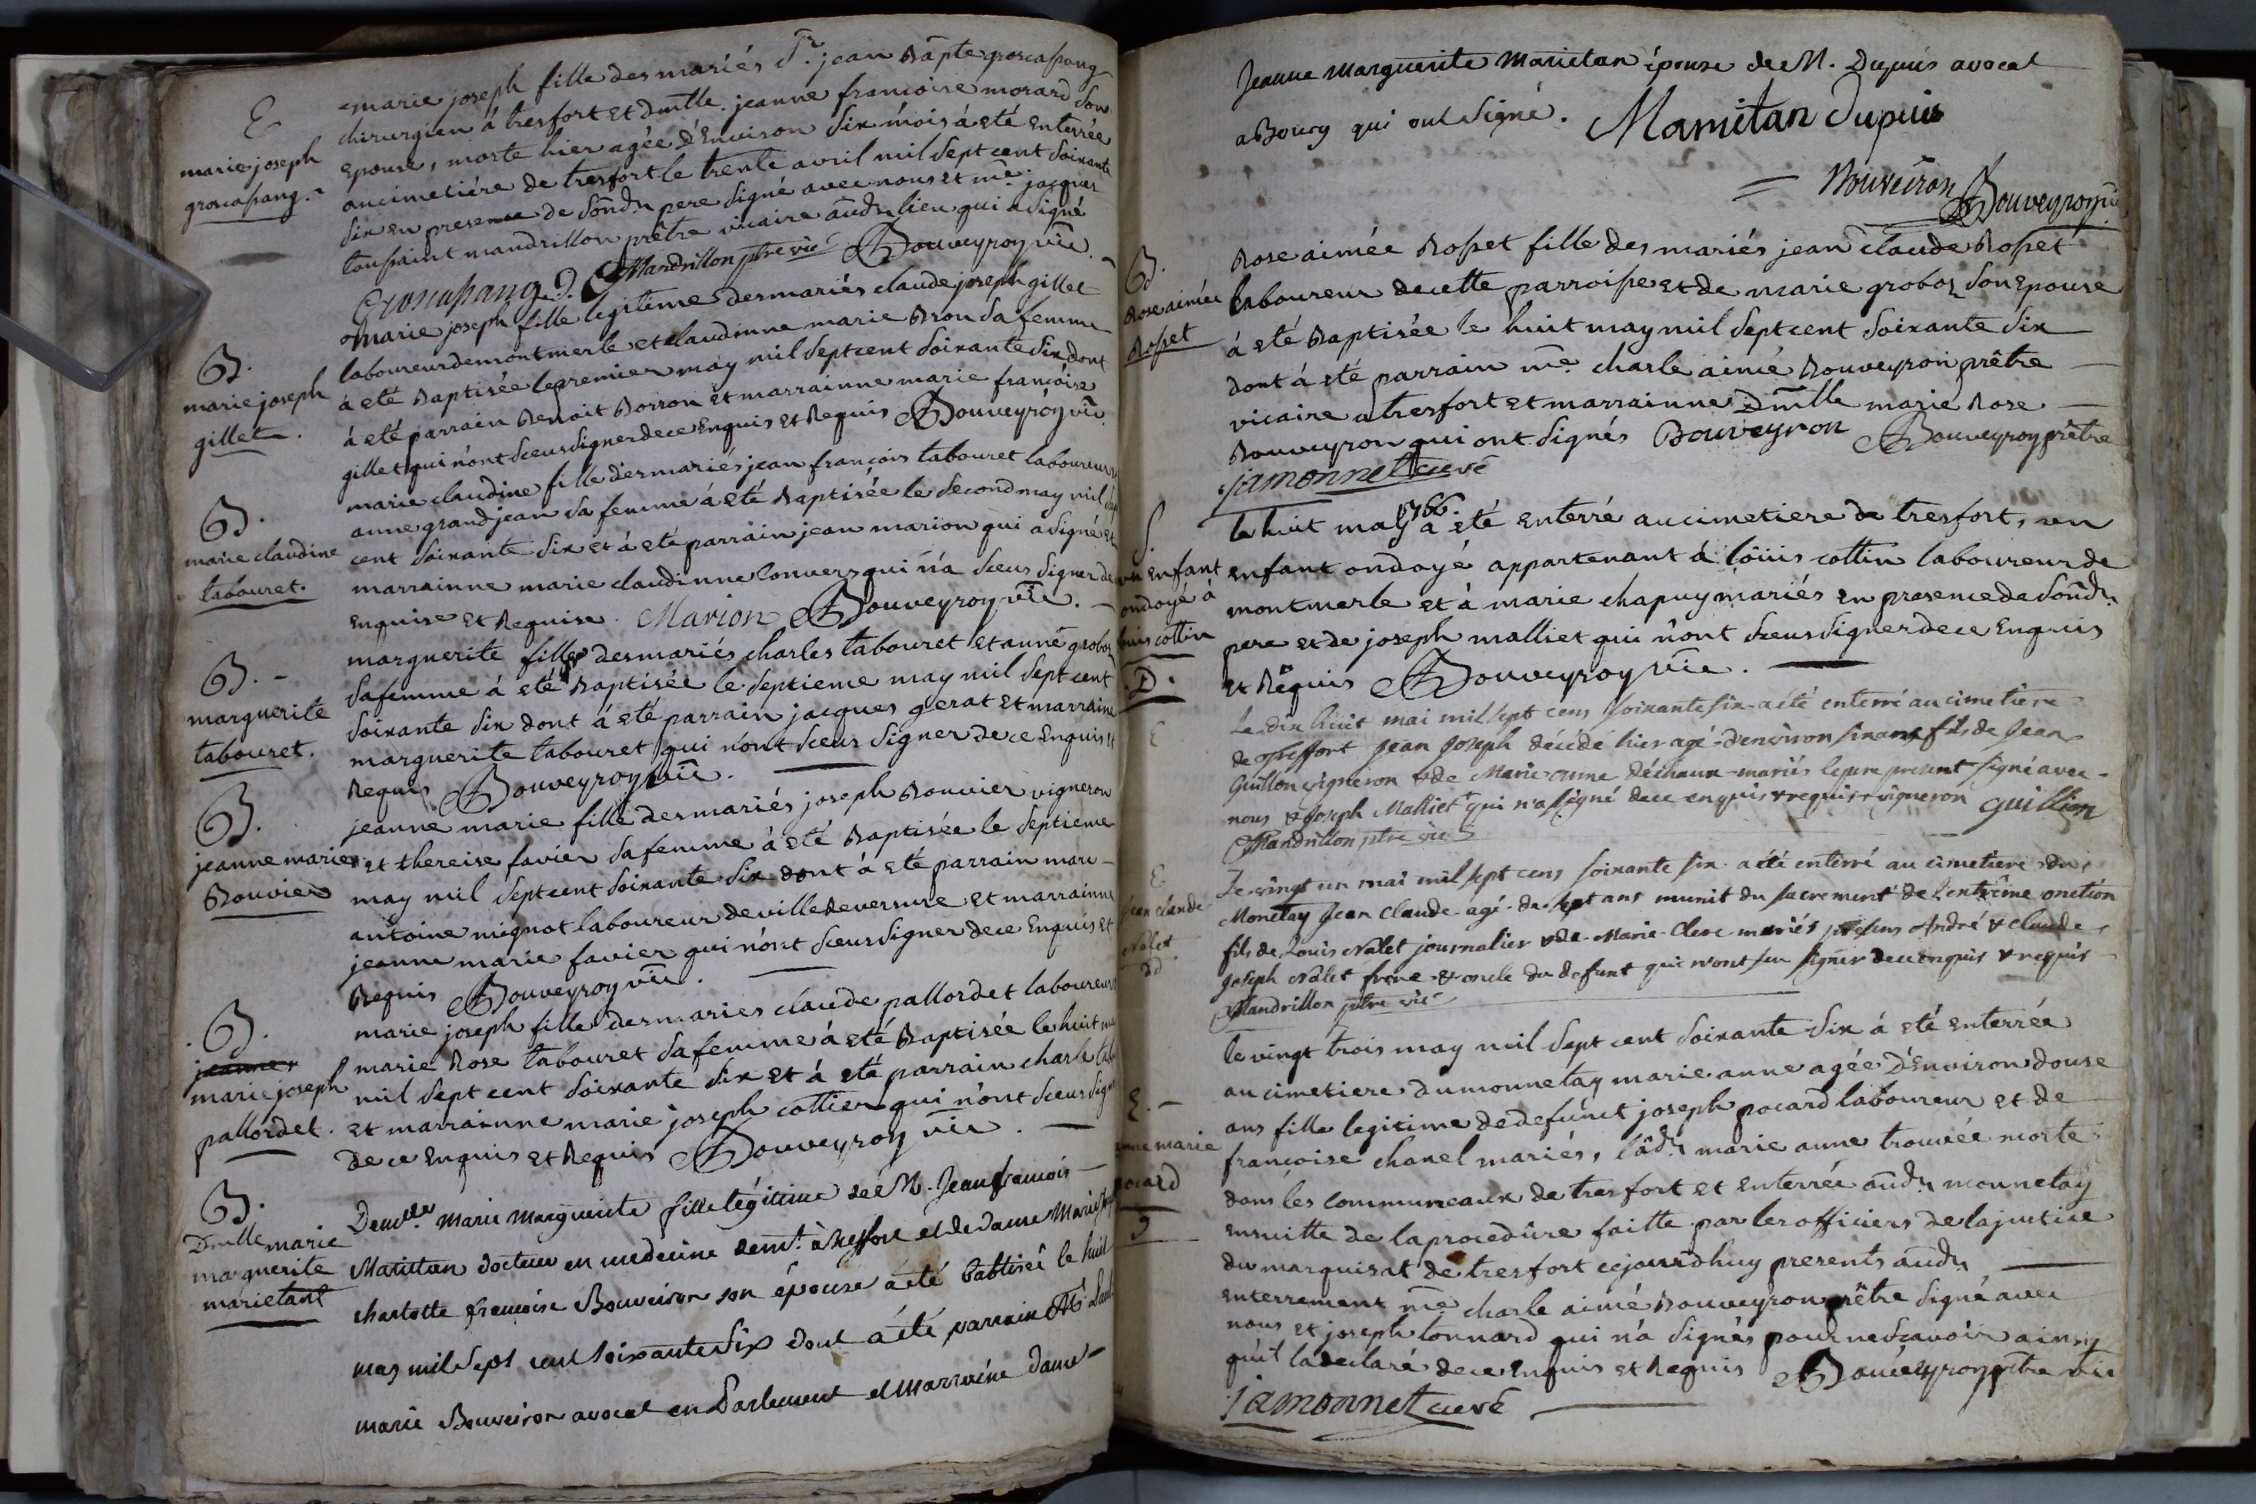 E
marie joseph
groscassang.
marie joseph fille des mariés Sr. jean Bapte groscassang
chirurgien á tresfort et dmlle. jeanne francoise morard son
epouse, morte hier agée d'Environ Six mois á eté enterrée
au cimetiére de tresfort le trente avril mil sept cent soixante
six en presence de Sond. pere signé avec nous et me. jacques
toussaint mandrillon prêtre vicaire aud. lieu qui a signé
Groscassang. Mandrillon ptre vic Bouveyron vic.
B.
marie joseph
gillet.
marie joseph fille legitime des mariés claude joseph gillet
laboureur de montmerle et claudinne marie Bron sa femme
á eté Baptisée le premier may mil sept cent soixante six dont
á eté parrain Benoit Borron et marrainne marie francoise
gillet qui n'ont sceu signer de ce Enquis et Requis Bouveyron vic.
B.
marie claudine
tabouret.
marie claudine fille des mariés jean francois tabouret laboureur
anne grandjean sa femme á eté Baptisée le second may mil sept
cent soixante six et á eté parrain jean marion qui a signé et
marrainne marie claudinne Convers qui n'a sceu signer de
enquise et Requise. Marion Bouveyron vic.
B.
marguerite
tabouret.
marguerite fille des mariés charles tabouret et anne groboz
sa femme á eté Baptisée le septieme may mil sept cent
soixante six dont á eté parrain jacques gerat et marraine
marguerite tabouret qui n'ont sceu signer de ce Enquis et
Requis Bouveyron vic.
B.
jeanne marie
Bouvier
jeanne marie fille des mariés joseph Bouvier vigneron
et thereise favier sa femme á eté Baptisée le septieme
may mil sept cent soixante six dont á eté parrain marc
antoine mignot laboureur de villedeversure et marrainne
jeanne marie favier qui n'ont sceu signer de ce Enquis et
Requis Bouveyron vic.
B.
jeanne
marie joseph
pallordet.
marie joseph fille des mariés claude pallordet laboureur
marie Rose tabouret sa femme á eté Baptisée le huit may
mil sept cent soixante six et á eté parrain charle tab
et marrainne marie joseph collier qui n'ont sceu sign
de ce Enquis et Requis Bouveyron vic.
B.
Dmlle marie
marguerite
marietant
Demlle marie Marguerite fille légitime de M. Jean francois
Marietan docteur en medecine demt. à tresfort et de dame Marie
charlotte françoise Bouveiron son épouse a été babtisée le huit
may mil sept cent soixante six dont a été parrain Mr
marie Bouveiron avocat en Parlement et Marraine dame
Jeanne Marguerite Marietan épouse de M. Dupuis avocat
a Bourg qui ont signé. Marietan Dupuis
Bouveiron Bouveyron vic.
B.
Rose aimée
Rosset
Rose aimée Rosset fille des mariés jean claude Rosset
laboureur de cette parroisse et de marie groboz son Epouse
á eté Baptisée le huit may mil sept cent soixante six
dont á eté parrain me. charle aimé Bouveyron prêtre
vicaire a tresfort et marrainne Dmlle marie Rose
Bouveyron qui ont signés Bouveyron Bouveyron prêtre
jamonnet curé
S.
un Enfant
ondoyé à
louis cottin
D.
le huit may 1766. a eté enterré au cimetiere de tresfort, un
enfant ondoyé appartenant á löüis cottin laboureur de
montmerle et á marie chapuy mariés en presence de Sond.
pere et de joseph malliet qui n'ont sceu signer de ce Enquis
et Requis Bouveyron vic.
E
Le dix huit mai mil sept cens soixante six a été enterré au cimetiere
de Treffort Jean Joseph décédé hier agé d'environ six ans fils de Jean
Guillon vigneron & de Marie anne Déchaux mariés le pere present signé avec
nous & Joseph Malliet qui n'a signé de ce enquis & requis vigneron guillion
Mandrillon ptre vic
E
jean claude
Nalet
Le vingt un mai mil sept cens soixante six a été enterré au cimetiere du
Monetay Jean Claude agé de sept ans munit du sacrement de l'extrême onction
fils de Louis Nalet journalier & de Marie Clerc mariés presens André & Claude
Joseph Nalet frere & oncle du defunt qui n'ont su signer de ce enquis & requis
Mandrillon ptre vic
E.
anne marie
pocard
le vingt trois may mil sept cent soixante six á eté enterrée
au cimetiere du monnetay marie anne agée d'Environ douse
ans fille legitime de defunct joseph pocard laboureur et de
françoise chanel mariés, lad. marie anne trouvée morte
dans les communeaux de tresfort et enterrée aud. monnetay
ensuitte de la procedûre faitte par les officiers de la justice
du marquisat de tresfort cejourdhuy presents aud.
enterrement me charle aimé Bouveyron prêtre signé avec
nous et joseph tonnard qui n'a signés pour ne scavoir ainsy
qu'il la declaré de ce Enquis et Requis Bouveyron prêtre vic
jamonnet curé